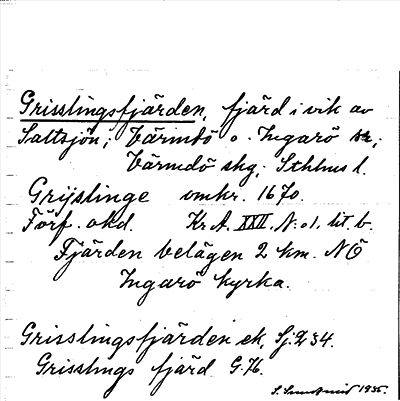 Grisslingsfjärden, fjärd i vik av
Saltsjön, Värmdö o. Ingarö snr,
Värmdö skg, Sthlms l.
Grijslinge omkr. 1670.
Förf. okd. Kr A. XXII, N:o 1, lit. b.
Fjärden belägen 2 km. NÖ
Ingarö kyrka.
Grisslingsfjärden ek, Sj. Q 34.
Grisslings fjärd G. 76.
1935.